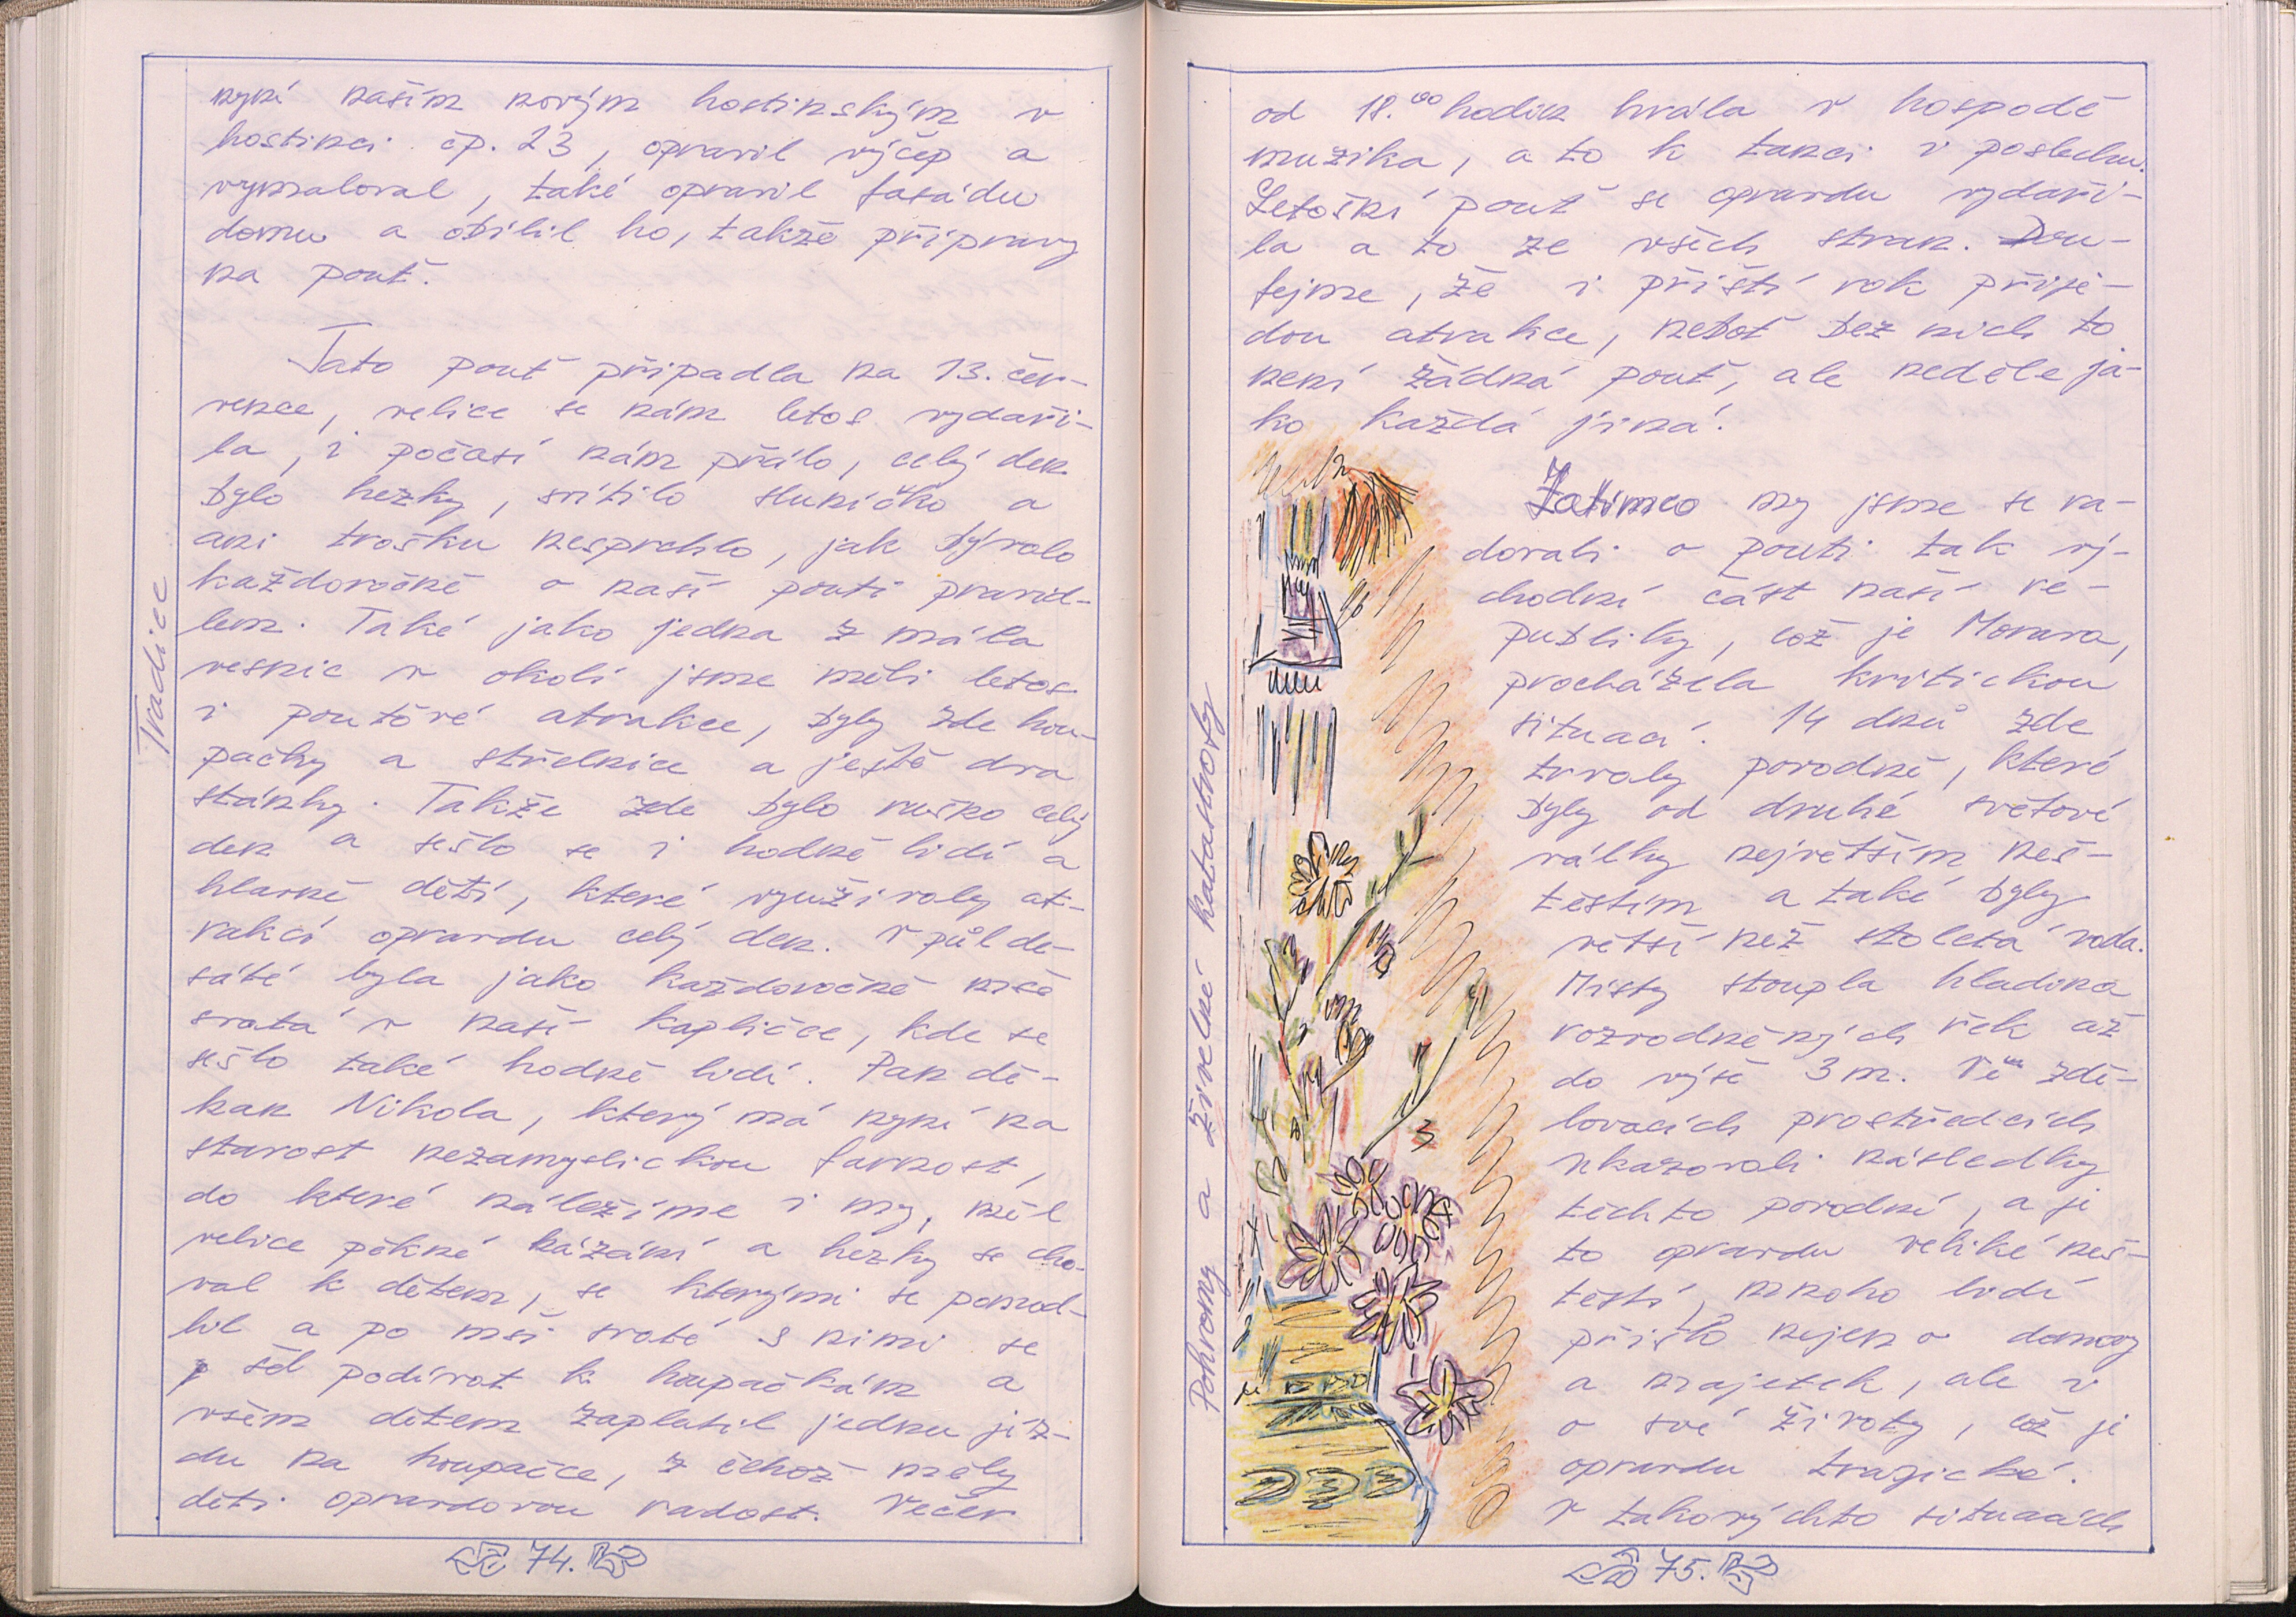 nyní naším novým hostinským v
hostinci čp. 23, opravil výčep a
vymaloval, také opravil fasádu
domu a obílil ho, takže přípravy
na pouť.
Tato pouť připadla na 13. čer-
vence, velice se nám letos vydaři-
la, i počasí nám přálo, celý den
bylo hezky, svítilo sluníčko a
ani trošku nesprchlo, jak bývalo
každoročně o naší pouti pravid-
lem. Také jako jedna z mála
vesnic v okolí jsme měli letos
i pouťové atrakce, byly zde hou-
pačky a střelnice a ještě dva
stánky. Takže zde bylo rušno celý
den a sešlo se i hodně lidí a
hlavně dětí, které využívaly at-
rakcí opravdu celý den. V půl de-
sáté byla jako každoročně mše
svatá v naší kapličce, kde se
sešlo také hodně lidí. Pan dě-
kan Nikola, který má nyní na
starost nezamyslickou farnost,
do které náležíme i my, měl
velice pěkné kázání a hezky se cho-
val k dětem, se kterými se pomod-
lil a po mši svaté s nimi se
šel podívat k houpačkám a
všem dětem zaplatil jednu jíz-
du na houpačce, z čehož měly
děti opravdovou radost. Večer
Tradice
74.
od 18.00 hodin hrála v hospodě
muzika, a to k tanci i poslechu.
Letoškí pouť se opravdu vydaři-
la a to ze všech stran. Dou-
fejme, že i příští rok přije-
dou atrakce, neboť bez nich to
není žádná pouť, ale neděle ja-
ko každá jiná.
Zatímco my jsme se ra-
dovali o pouti tak vý-
chodní část naší re-
publiky, což je Morava,
procházela kritickou
situací. 14 dnů zde
trvaly povodně, které
byly od druhé světové
války největším neš-
těstím a také byly
větší než stoletá voda.
Místy stoupla hladina
rozvodněných řek až
do výše 3 m. Ve sdě-
lovacích prostředcích
ukazovali následky
těchto povodní, a je
to opravdu veliké neš-
těstí, mnoho lidí
přišlo nejen o domovy
a majetek, ale i
o své životy, což je
opravdu tragické.
V takovýchto situacích
Pohromy a živelné katastrofy
75.